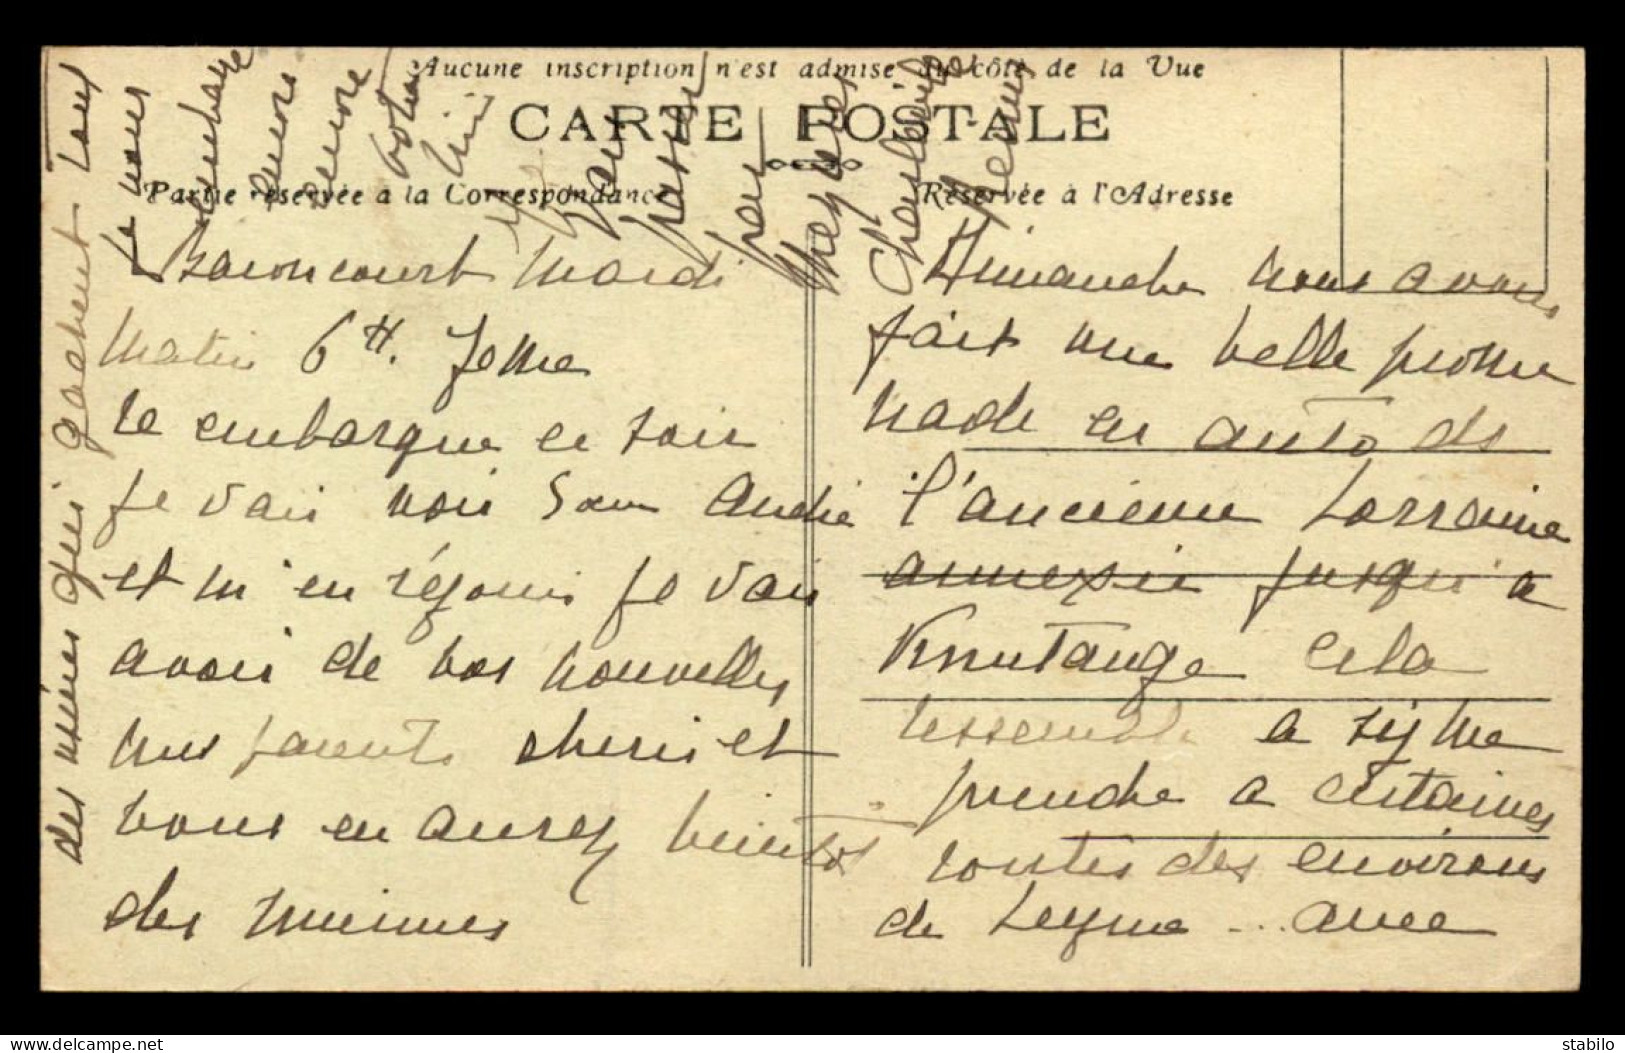 Aucune inscription n'est admise du côté de la Vue
CARTE POSTALE
Partie réservée à la Correspondance
Réservée à l'Adresse
Baroncourt mardi
matin 6 H. Jeme
le embarque ce soir
Je vais voir Sœur André
et m'en réjouis Je vais
avoir de vos nouvelles
mes parents cheris et
vous en aurez bientot
des miennes
Dimanche nous avons
fait une belle prome
nade en auto ds
l'ancienne Lorraine
annexée jusqu'à
Knutange cela
ressemble a s'y me
prendre a certaines
routes des environs
de Seyne ... avec
des usines qui gachent tout
Je vous
embrasse
encore
encore
votre
Mimi
par
Charleville
stabilo